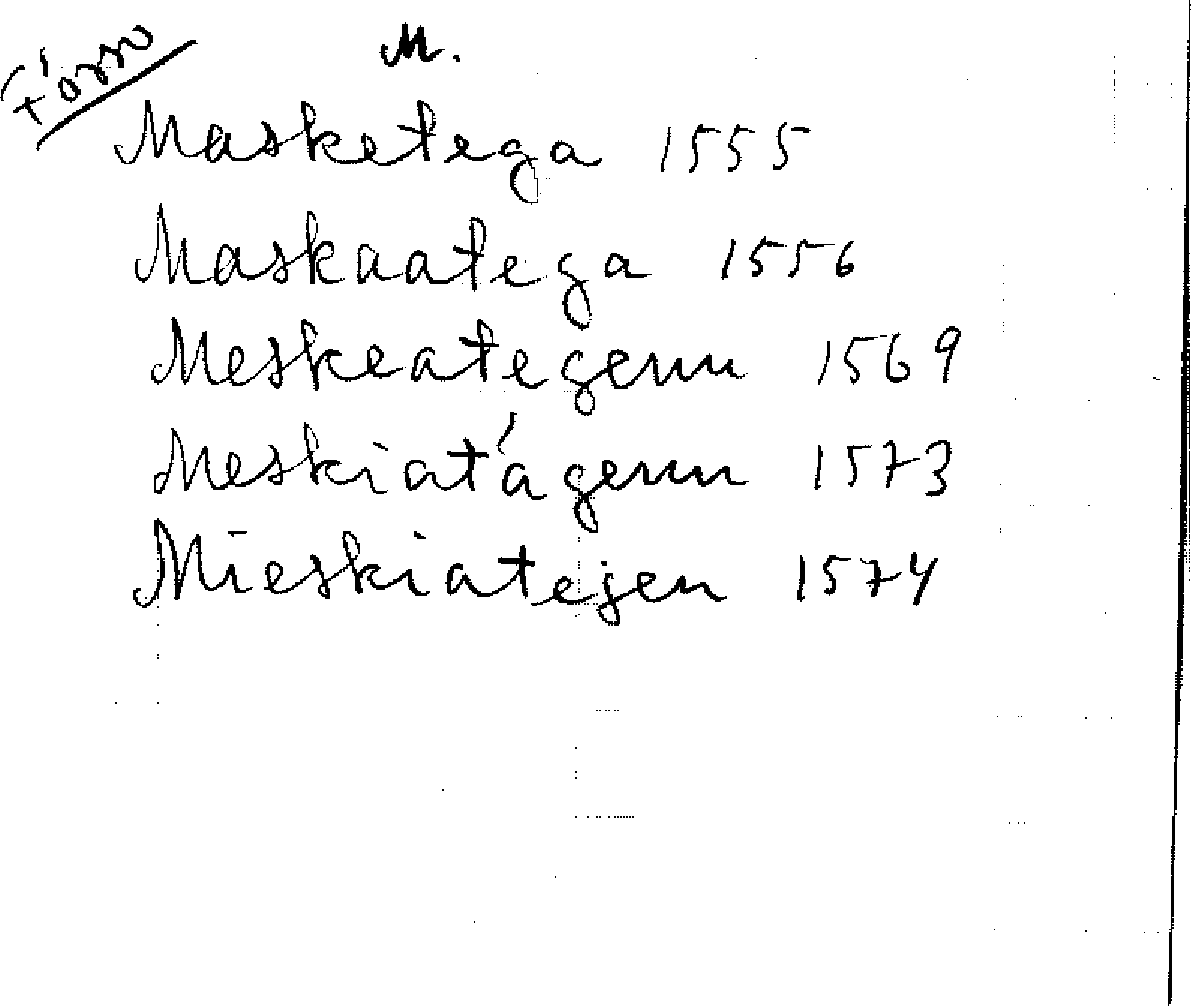 Försv
M.
Masketega 1555
Maskaatega 1556
Meskeategenn 1569
Meskiatágenn 1573
Mieskiatejen 1574